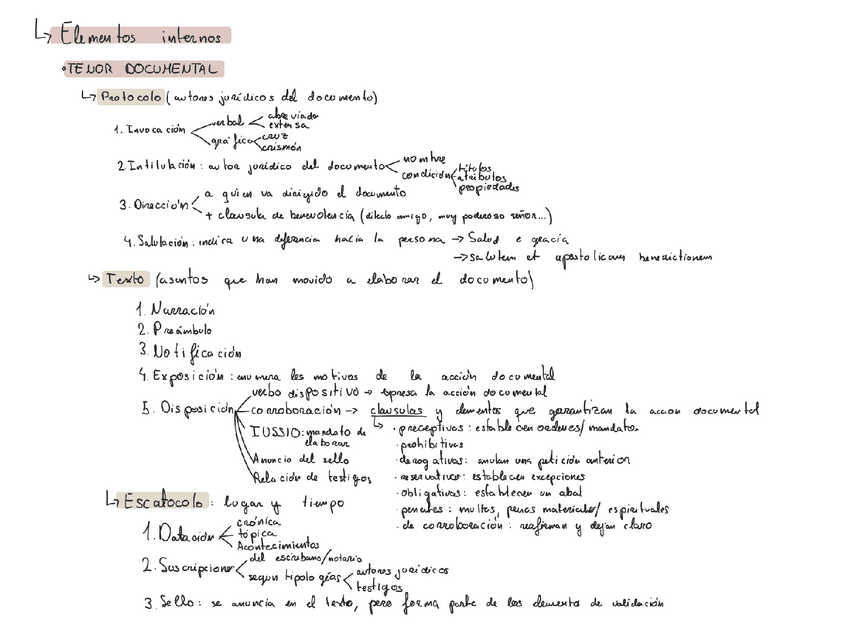 ↳ Elementos internos
• TENOR DOCUMENTAL
↳ Protocolo (autores jurídicos del documento)
1. Invocación verbal abreviada extensa
gráfica cruz crismón
2. Intitulación: autor jurídico del documento nombre
condición títulos atributos propiedades
3. Dirección a quien va dirigido el documento
+ clausula de benevolencia (dilecto amigo, muy poderoso señor...)
4. Salutación: indica una deferencia hacia la persona → Salud e gracia
→ salutem et apostolicam benedictionem
↳ Texto (asuntos que han movido a elaborar el documento)
1. Narración
2. Preámbulo
3. Notificación
4. Exposición: enumera los motivos de la acción documental
verbo dispositivo → expresa la acción documental
5. Disposición corroboración → clausulas y elementos que garantizan la accion documental
IUSSIO: mandato de elaborar
↳ • preceptivas: establecen ordenes/ mandatos
• prohibitivas
Anuncio del sello
• derogativas: anulan una petición anterior
Relación de testigos
• reservativas: establecen excepciones
• obligativas: establecen un
• penales: multas, penas materiales/ espirituales
• de corroboración: reafirman y dejan claro
↳ Escatocolo: lugar y tiempo
1. Datación crónica
tópica
Acontecimientos
2. Suscripciones del escribano/notario
segun tipologías autores jurídicos
testigos
3. Sello: se anuncia en el texto, pero forma parte de los elementos de validación